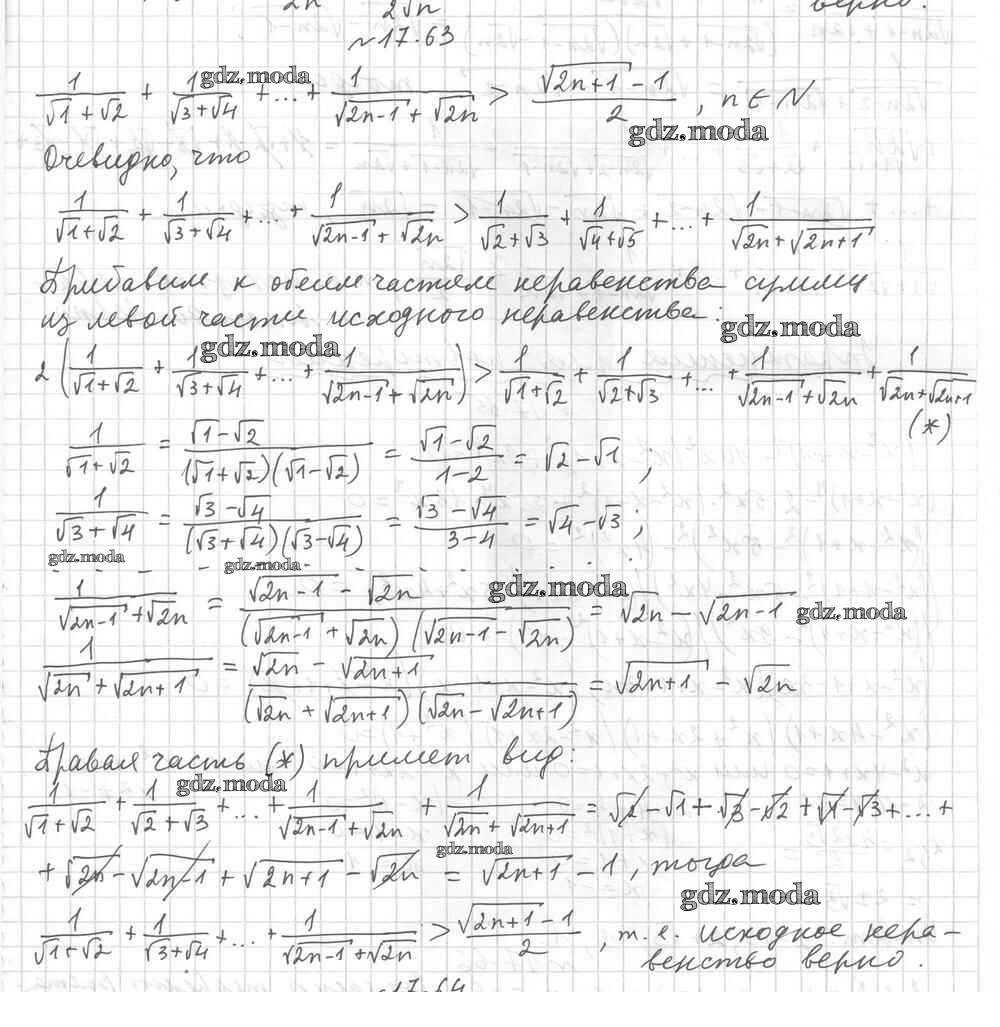 2n 2√n верно.
~17.63
1/(√1+√2) + 1/(√3+√4) + ... + 1/(√(2n-1) + √(2n)) > (√(2n+1) - 1)/2, n ∈ N
gdz.moda
gdz.moda
Очевидно, что
1/(√1+√2) + 1/(√3+√4) + ... + 1/(√(2n-1) + √(2n)) > 1/(√2+√3) + 1/(√4+√5) + ... + 1/(√(2n) + √(2n+1))
Прибавим к обеим частям неравенства сумму
из левой части исходного неравенства:
gdz.moda
gdz.moda
2 (1/(√1+√2) + 1/(√3+√4) + ... + 1/(√(2n-1) + √(2n))) > 1/(√1+√2) + 1/(√2+√3) + ... + 1/(√(2n-1) + √(2n)) + 1/(√(2n) + √(2n+1))
(*)
1/(√1+√2) = (√1-√2)/((√1+√2)(√1-√2)) = (√1-√2)/(1-2) = √2-√1 ;
1/(√3+√4) = (√3-√4)/((√3+√4)(√3-√4)) = (√3-√4)/(3-4) = √4-√3 ;
gdz.moda
gdz.moda
gdz.moda
1/(√(2n-1) + √(2n)) = (√(2n-1) - √(2n))/((√(2n-1) + √(2n))(√(2n-1) - √(2n))) = √(2n) - √(2n-1)
gdz.moda
1/(√(2n) + √(2n+1)) = (√(2n) - √(2n+1))/((√(2n) + √(2n+1))(√(2n) - √(2n+1))) = √(2n+1) - √(2n)
Правая часть (*) примет вид:
gdz.moda
1/(√1+√2) + 1/(√2+√3) + ... + 1/(√(2n-1) + √(2n)) + 1/(√(2n) + √(2n+1)) = √2-√1+√3-√2+√4-√3+...+
gdz.moda
+ √(2n) - √(2n-1) + √(2n+1) - √(2n) = √(2n+1) - 1, тогда
gdz.moda
1/(√1+√2) + 1/(√3+√4) + ... + 1/(√(2n-1) + √(2n)) > (√(2n+1) - 1)/2, т.е. исходное нера-
венство верно.
~17.64